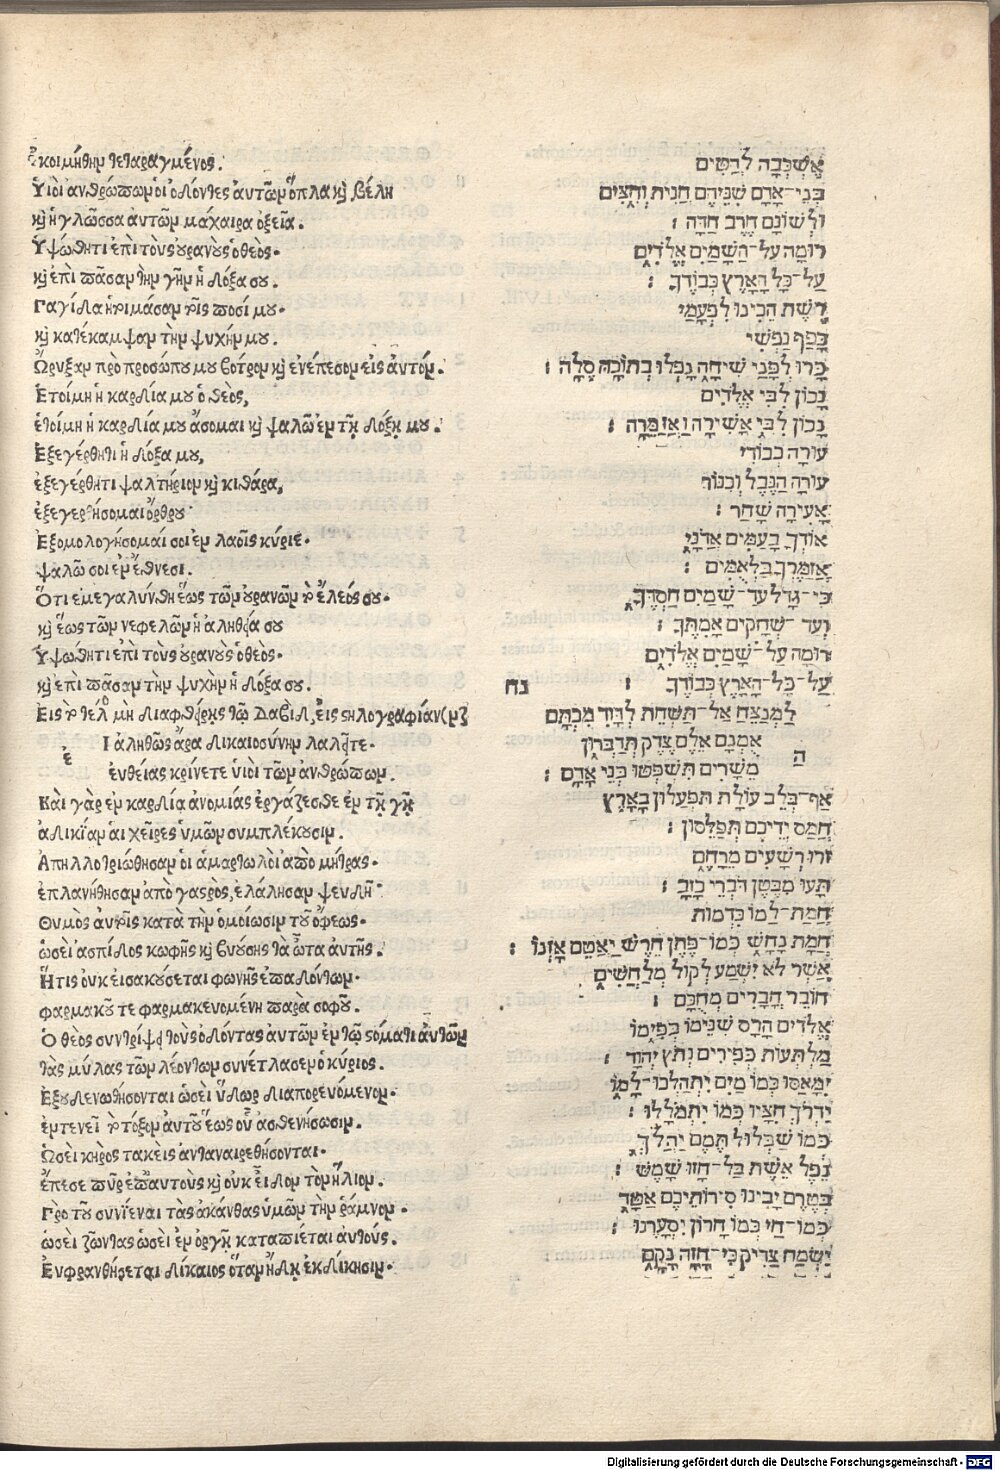 ἐκοιμήθην τεταραγμένος.
Υἱοὶ ἀνθρώπων οἱ ὀδόντες ἀυτῶν ὅπλα κỳ βέλη
κỳ ἡ γλῶσσα ἀυτῶν μάχαιρα ὀξεῖα.
Ὑψώθητι ἐπὶ τοὺς ȣρανȣ̀ς ὁ θεὸς.
κỳ ἐπὶ πᾶσαν τὴν γῆν ἡ δόξα σου.
Παγίδα ἡτοίμασαν τοῖς ποσί μου.
κỳ κατέκαμψαν τὴν ψυχήν μου.
Ὤρυξαν πρὸ προσώπου μου βόθρον κỳ ἐνέπεσον εἰς ἀυτόν.
Ἑτοίμη ἡ καρδία μου ὁ θεὸς,
ἑτοίμη ἡ καρδία μου ἄσομαι κỳ ψαλῶ ἐν τῇ δόξῃ μου.
Ἐξεγέρθητι ἡ δόξα μου,
ἐξεγέρθητι ψαλτήριον κỳ κιθάρα,
ἐξεγερθήσομαι ὄρθρου
Ἐξομολογήσομαί σοι ἐν λαοῖς κύριε.
ψαλῶ σοι ἐν ἔθνεσι.
Ὅτι ἐμεγαλύνθη ἕως τῶν ȣρανῶν τὸ ἔλεός σου.
κỳ ἕως τῶν νεφελῶν ἡ ἀλήθεια σου
Ὑψώθητι ἐπὶ τοὺς ȣρανȣ̀ς ὁ θεὸς.
κỳ ἐπὶ πᾶσαν τὴν ψυχὴν ἡ δόξα σου.
Εἰς τὸ τέλος μὴ διαφθείρῃς τῷ Δαβὶδ, εἰς στηλογραφίαν
ἐ Ι ἀληθῶς ἄρα δικαιοσύνην λαλεῖτε.
ἐυθείας κρίνετε ὑιοὶ τῶν ἀνθρώπων.
Καὶ γὰρ ἐν καρδίᾳ ἀνομίας ἐργάζεσθε ἐν τῇ γῇ
ἀδικίαν αἱ χεῖρες ὑμῶν συμπλέκουσιν.
Ἀπηλλοτριώθησαν οἱ ἁμαρτωλοὶ ἀπὸ μήτρας.
ἐπλανήθησαν ἀπὸ γαστρὸς, ἐλάλησαν ψευδῆ
Θυμὸς ἀυτοῖς κατὰ τὴν ὁμοίωσιν τοῦ ὄφεως.
ὡσεὶ ἀσπίδος κωφῆς κỳ βυούσης τὰ ὦτα ἀυτῆς.
Ἥτις ȣ̓κ ἐισακούσεται φωνῆς ἐπᾳδόντων.
φαρμακοῦ τε φαρμακευομένη παρὰ σοφοῦ.
Ὁ θεὸς συντρίψει τοὺς ὀδόντας ἀυτῶν ἐν τῷ στόματι ἀυτῶν
τὰς μύλας τῶν λέοντων συνέτλασεν ὁ κύριος.
Ἐξουδενωθήσονται ὡσεὶ ὕδωρ διαπορευόμενον.
ἐντενεῖ τὸ τόξον ἀυτοῦ ἕως οὗ ἀσθενήσωσιν.
Ὡσεὶ κηρὸς τακεὶς ἀνταναιρεθήσονται.
ἔπεσε πῦρ ἐπ' ἀυτοὺς κỳ ȣ̓κ εἶδον τὸν ἥλιον.
Πρὸ τοῦ συνίεναι τὰς ἀκάνθας ὑμῶν τὴν ῥάμνον.
ὡσεὶ ζῶντας ὡσεὶ ἐν ὀργῇ καταπίεται ἀυτούς.
Ἐυφρανθήσεται δίκαιος ὅταν ἤδῃ ἐκδίκησιν.
אֶשְׁכְּבָה לֹהֲטִים
בְּנֵי־אָדָם שִׁנֵּיהֶם חֲנִית וְחִצִּים
וּלְשׁוֹנָם חֶרֶב חַדָּה׃
רוּמָה עַל־הַשָּׁמַיִם אֱלֹדִים
עַל־כָּל הָאָרֶץ כְּבוֹדֶךָ׃
רֶשֶׁת הֵכִינוּ לִפְעָמַי
כָּפַף נַפְשִׁי
כָּרוּ לְפָנַי שִׁיחָה נָפְלוּ בְתוֹכָהּ סֶלָה׃
נָכוֹן לִבִּי אֱלֹדִים
נָכוֹן לִבִּי אָשִׁירָה וַאֲזַמֵּרָה׃
עוּרָה כבוֹדִי
עוּרָה הַנֵּבֶל וְכִנּוֹר
אָעִירָה שָּׁחַר׃
אוֹדְךָ בָעַמִּים אֲדֹנָי
אֲזַמֶּרְךָ בַּלְאֻמִּים׃
כִּי־גָדֹל עַד־שָׁמַיִם חַסְדֶּךָ
וְעַד־שְׁחָקִים אֲמִתֶּךָ׃
רוּמָה עַל־שָׁמַיִם אֱלֹדִים
עַל־כָּל־הָאָרֶץ כְּבוֹדֶךָ׃
נח
לַמְנַצֵּחַ אַל־תַּשְׁחֵת לְדָוִד מִכְתָּם
ה אֻמְנָם אֵלֶם צֶדֶק תְּדַבֵּרוּן
מֵשָׁרִים תִּשְׁפְּטוּ בְּנֵי אָדָם׃
אַף־בְּלֵב עוֹלֹת תִּפְעָלוּן בָּאָרֶץ
חֲמַס יְדֵיכֶם תְּפַלֵּסוּן׃
זֹרוּ רְשָׁעִים מֵרָחֶם
תָּעוּ מִבֶּטֶן דֹּבְרֵי כָזָב׃
חֲמַת־לָמוֹ כִּדְמוּת
חֲמַת נָחָשׁ כְּמוֹ־פֶתֶן חֵרֵשׁ יַאְטֵם אָזְנוֹ׃
אֲשֶׁר לֹא יִשְׁמַע לְקוֹל מְלַחֲשִׁים
חוֹבֵר חֲבָרִים מְחֻכָּם׃
אֱלֹדִים הֲרָס שִׁנֵּימוֹ בְּפִימוֹ
מַלְתְּעוֹת כְּפִירִים נְתֹץ יְהוָֹד׃
יִמָּאֲסוּ כְמוֹ מַיִם יִתְהַלְּכוּ־לָמוֹ
יִדְרֹךְ חִצָּיו כְּמוֹ יִתְמֹלָלוּ׃
כְּמוֹ שַׁבְּלוּל תֶּמֶס יַהֲלֹךְ
נֵפֶל אֵשֶׁת בַּל־חָזוּ שָׁמֶשׁ׃
בְּטֶרֶם יָבִינוּ סִירוֹתֵיכֶם אָטָד
כְּמוֹ־חַי כְּמוֹ חָרוֹן יִסְעָרֶנּוּ׃
יִשְׂמַח צַדִּיק כִּי־חָזָה נָקָם
Digitalisierung gefördert durch die Deutsche Forschungsgemeinschaft - DFG